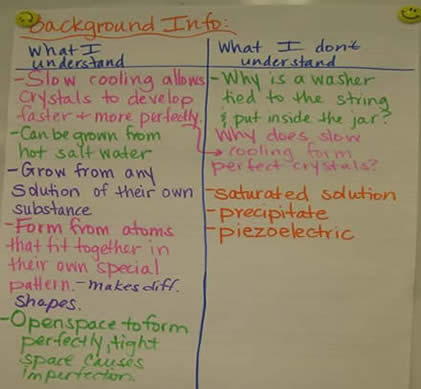 Background Info:
What I
understand
-Slow cooling allows
crystals to develop
faster + more perfectly.
-Can be grown from
hot salt water
-Grow from any
solution of their own
substance
-Form from atoms
that fit together in
their own special
pattern. -makes diff.
shapes.
-Open space to form
perfectly, tight
space causes
imperfection.
What I don't
understand
-Why is a washer
tied to the string
& put inside the jar?
Why does slow
cooling form
perfect crystals?
-saturated solution
-precipitate
-piezoelectric